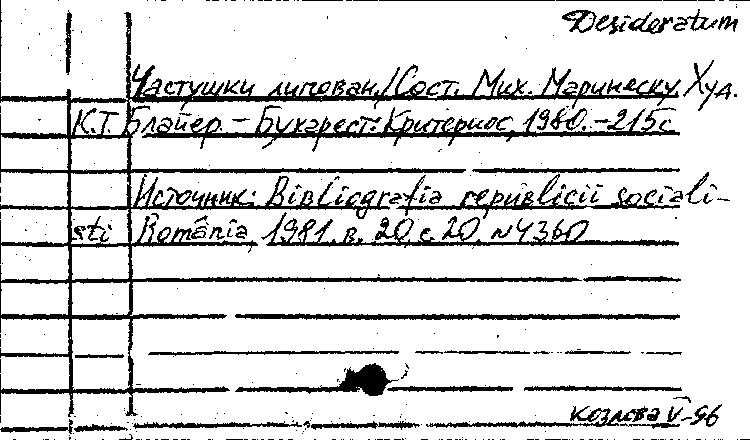 Desideratum
Частушки липован./Сост. Мих. Маринеску. Худ.
К.Т. Блайер. – Бухарест: Критерион, 1980. – 215с
Источник: Bibliografia republicii sociali-
sti România, 1981. в. 20, с. 20. №4360
Козлова V-96